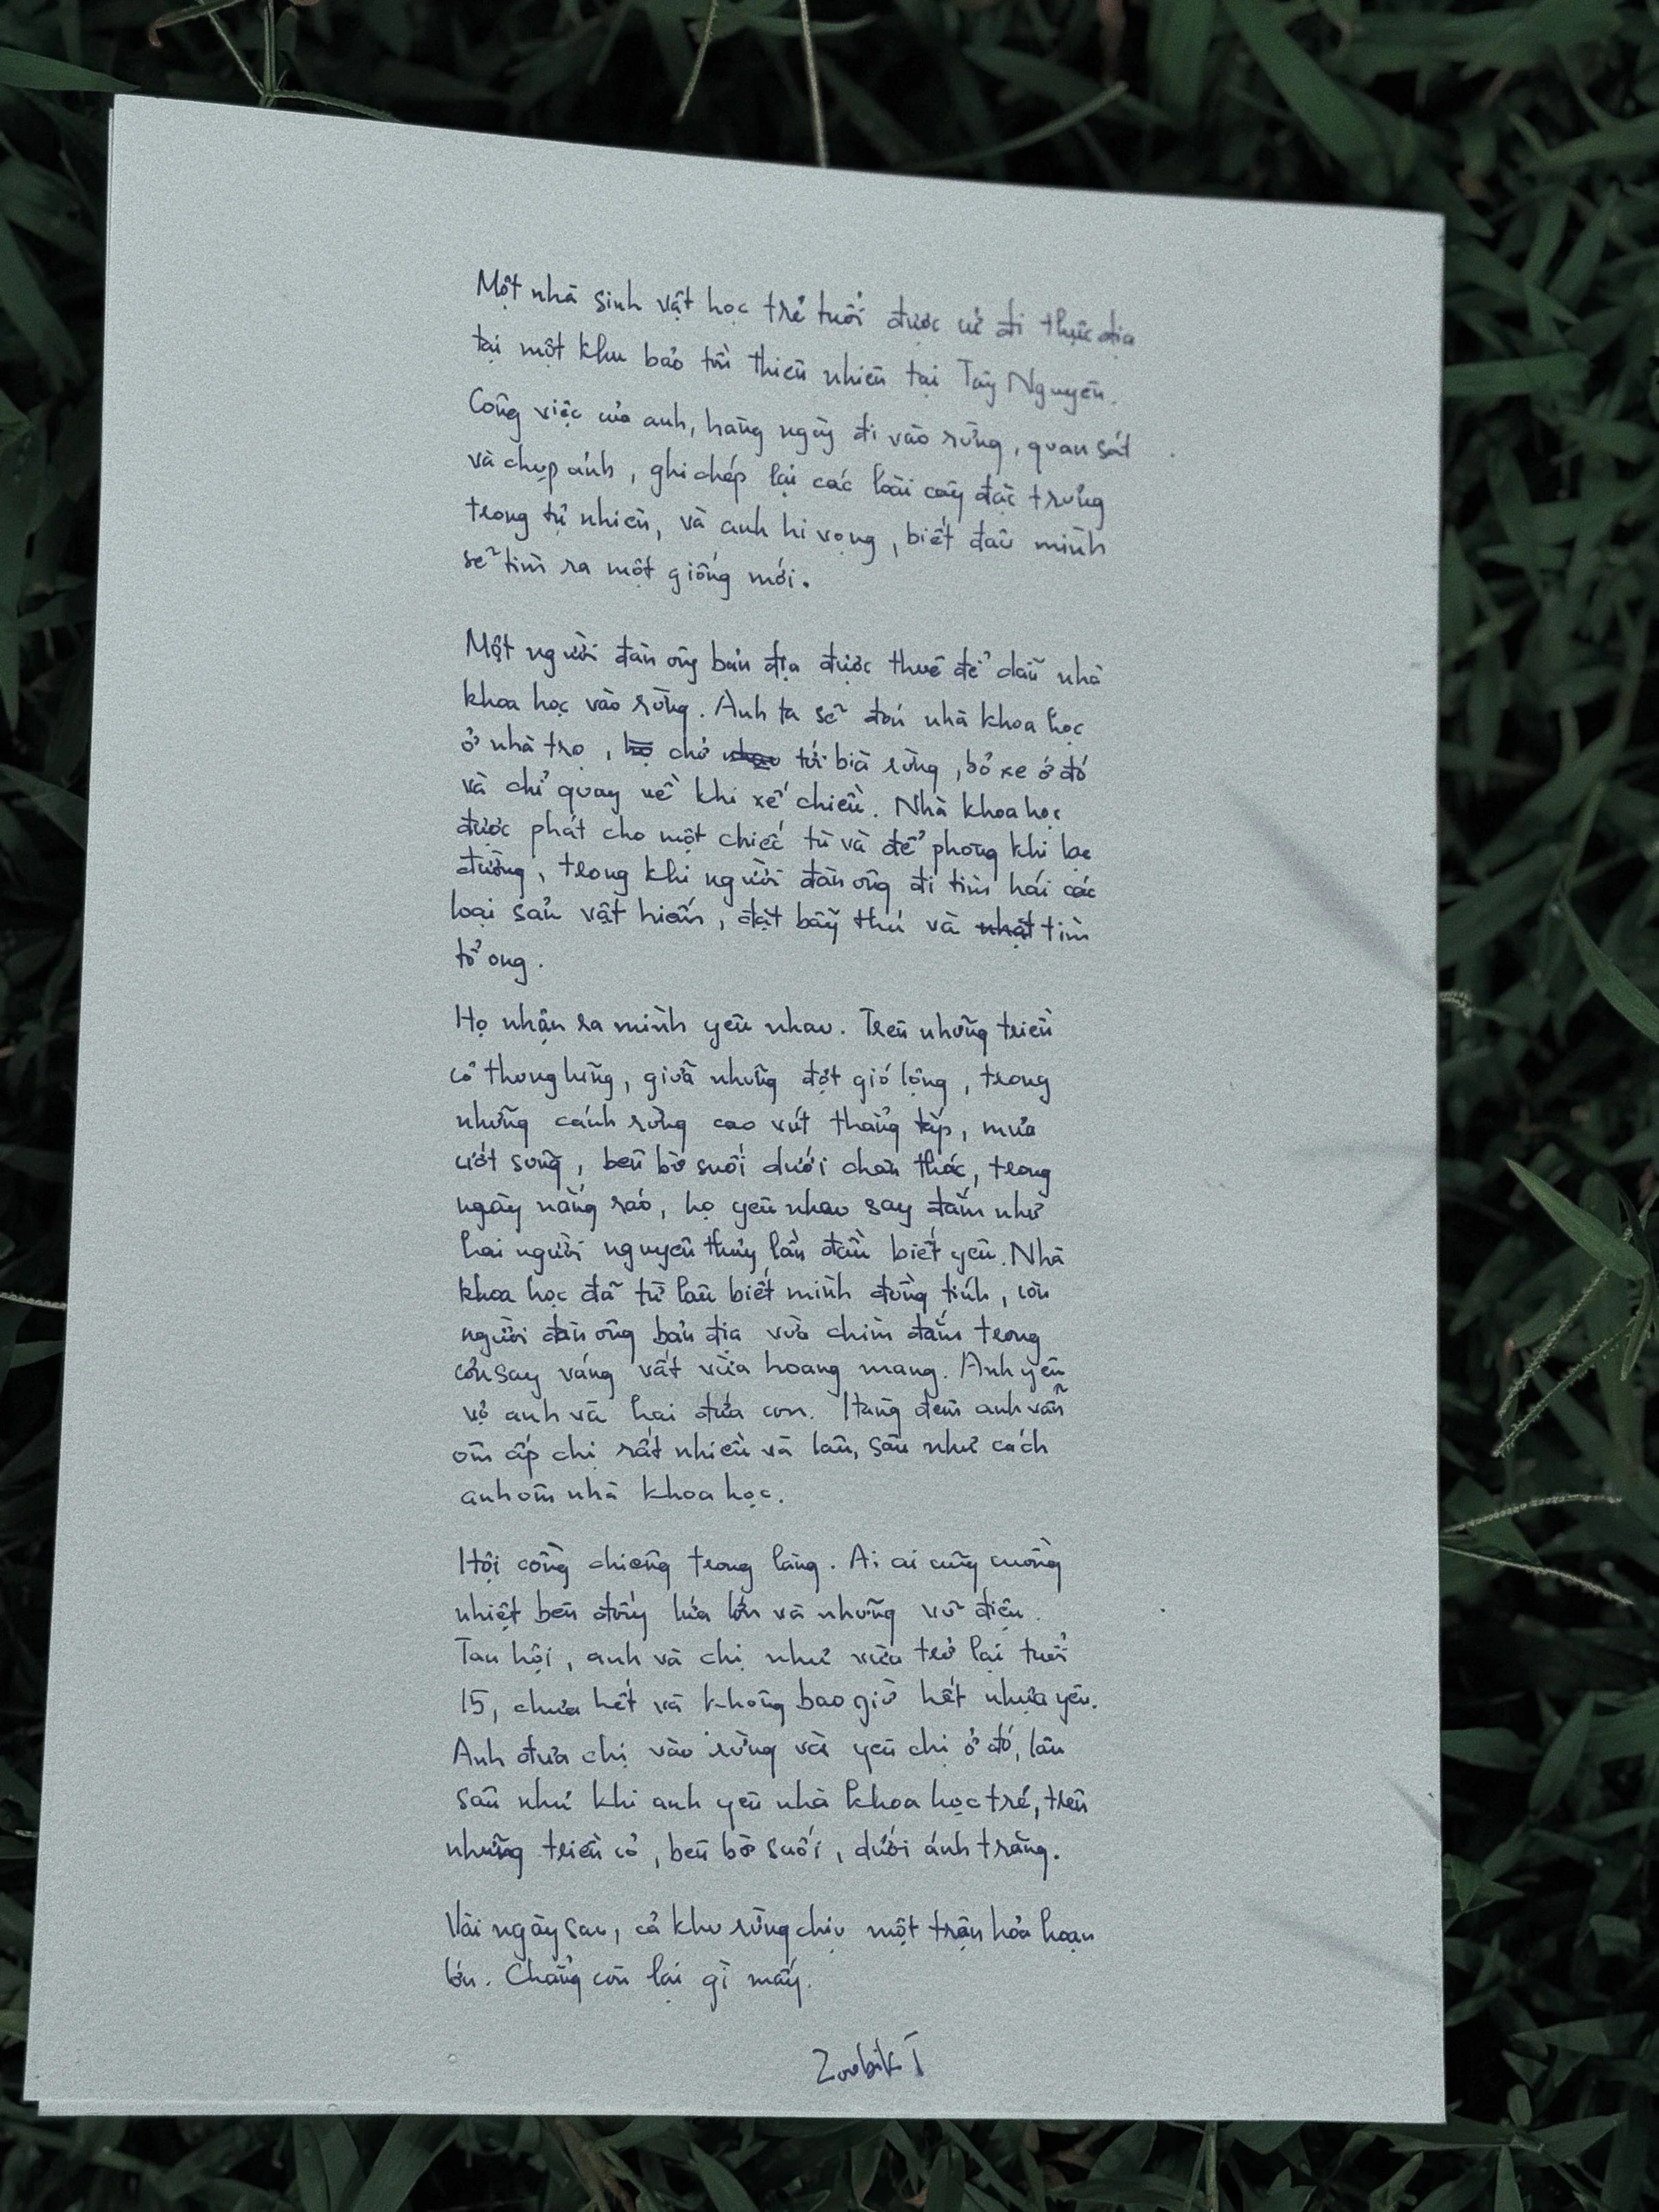 Một nhà sinh vật học trẻ tuổi được cử đi thực địa
tại một khu bảo tồn thiên nhiên tại Tây Nguyên.
Công việc của anh, hàng ngày đi vào rừng, quan sát
và chụp ảnh, ghi chép lại các loài cây đặc trưng
trong tự nhiên, và anh hi vọng, biết đâu mình
sẽ tìm ra một giống mới.
Một người đàn ông bản địa được thuê để dẫn nhà
khoa học vào rừng. Anh ta sẽ đón nhà khoa học
ở nhà trọ, chở tới bìa rừng, bỏ xe ở đó
và chỉ quay về khi xế chiều. Nhà khoa học
được phát cho một chiếc tù và để phòng khi lạc
đường, trong khi người đàn ông đi tìm hái các
loại sản vật hiếm, đặt bẫy thú và nhặt tìm
tổ ong.
Họ nhận ra mình yêu nhau. Trên những triền
cỏ thung lũng, giữa những đợt gió lộng, trong
những cánh rừng cao vút thẳng tắp, mưa
ướt sũng, bên bờ suối dưới chân thác, trong
ngày nắng ráo, họ yêu nhau say đắm như
hai người nguyên thủy lần đầu biết yêu. Nhà
khoa học đã từ lâu biết mình đồng tính, còn
người đàn ông bản địa vừa chìm đắm trong
cơn say váng vất vừa hoang mang. Anh yêu
vợ anh và hai đứa con. Hàng đêm anh vẫn
ôm ấp chị rất nhiều và lâu, sâu như cách
anh ôm nhà khoa học.
Hội cồng chiêng trong làng. Ai ai cũng cuồng
nhiệt bên đống lửa lớn và những vũ điệu.
Tan hội, anh và chị như vừa trở lại tuổi
15, chưa hết và không bao giờ hết nhựa yêu.
Anh đưa chị vào rừng và yêu chị ở đó, lâu
sâu như khi anh yêu nhà khoa học trẻ, trên
những triền cỏ, bên bờ suối, dưới ánh trăng.
Vài ngày sau, cả khu rừng chịu một trận hỏa hoạn
lớn. Chẳng còn lại gì mấy.